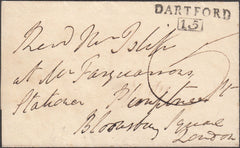 DARTFORD
15
Revd Mr Islip
at Mr Farquarrons
Stationer Plumptree St
Bloomsbury Square
London